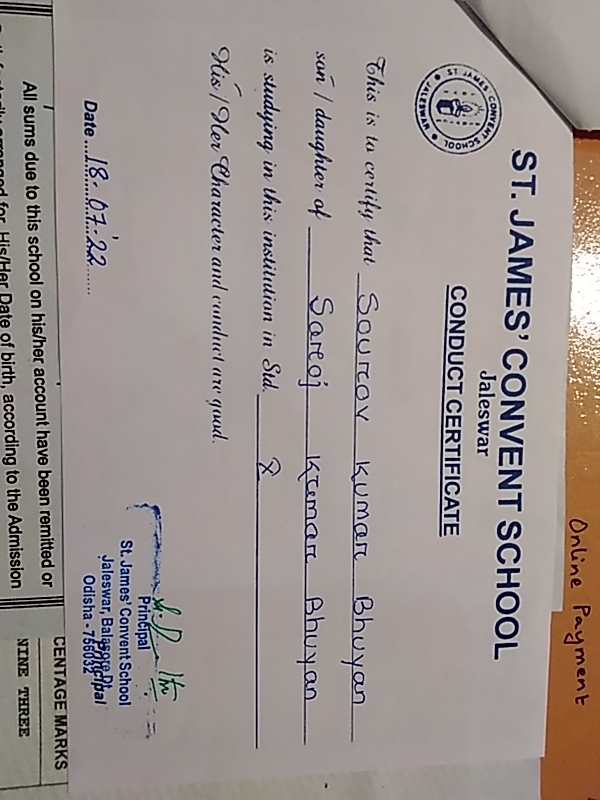 Online Payment
ST. JAMES' CONVENT SCHOOL
Jaleswar
CONDUCT CERTIFICATE
ST. JAMES' CONVENT SCHOOL
JALESWAR
This is to certify that Sourov Kumar Bhuyan
son / daughter of Saroj Kumar Bhuyan
is studying in this institution in Std. X
His / Her Character and conduct are good.
Date 18-07-22
Principal
St. James' Convent School
Jaleswar, Balasore
Odisha - 756032
Principal
All sums due to this school on his/her account have been remitted or
for. His/Her Date of birth, according to the Admission
CENTAGE MARKS
NINE THREE